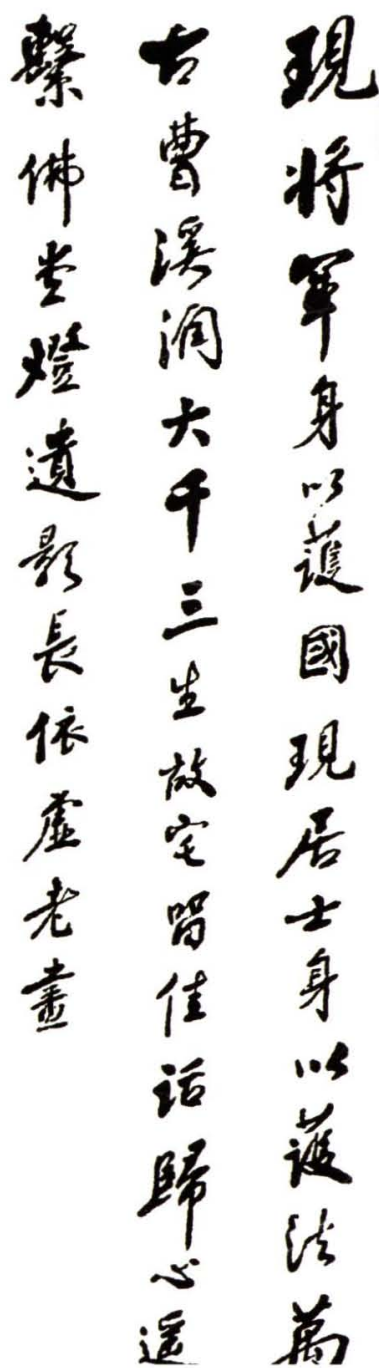 現將軍身以護國現居士身以護法萬
古曹溪潤大千三生故宅留佳話歸心遥
繫佛堂燈遺影長依虛老畫